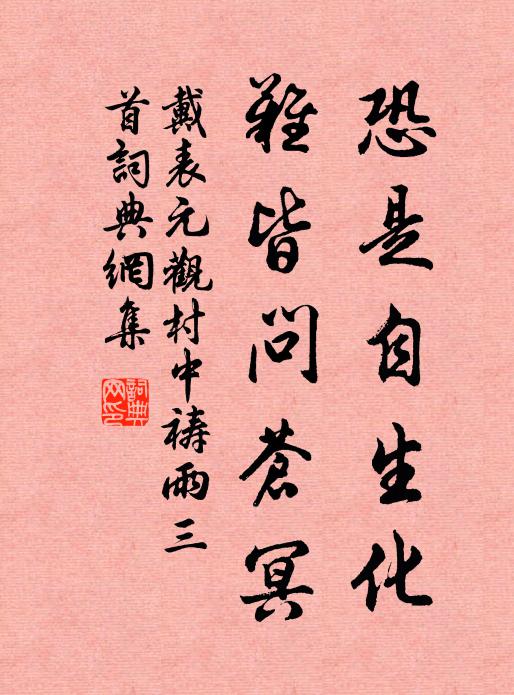 恐是自生化
難皆問蒼冥
戴表元觀村中禱雨三
首詞典網集
詞典網印